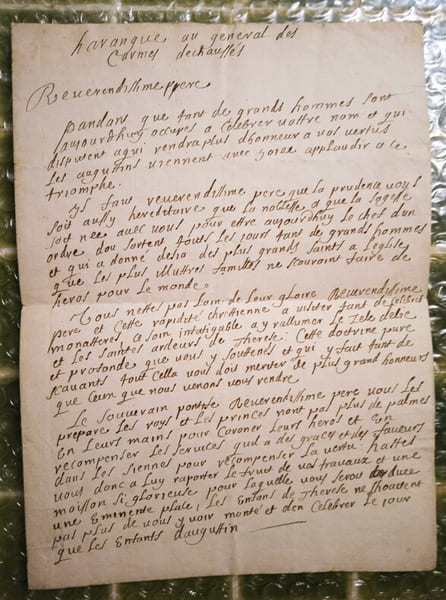 harangue au general des
Carmes dechaussés
Reverendissime pere
Pandant que tant de grands hommes sont
aujourdhuy occupes a Celebrer vostre nom et qui
disputent a qui rendra plus dhonneur a vos vertus
Les augustins viennent avec joiee applaudir a ce
triomphe.
Il faut reverendissime pere que la prudence vous
soit aussy hereditaire que la noblesse et que la sagesse
soit nee avec vous pour estre aujourdhuy le chef dun
ordre dou sortent touts les jours tant de grands hommes
et qui a donné desia des plus grands saints a leglise
que les plus illustres familles ne scauroint faire de
heros pour le monde
Vous nettes pas loin de leur gloire Reverendissime
pere et Cette rapidité chrettienne a visiter tant de
monasteres, Ce soin infatigable a y rallumer le zele delie
et les saintes ardeurs de Therese; Cette doctrine pure
et profonde que vous y soutenes et qui y fait tant de
scavants tout cella vous doit meriter de plus grand honneurs
que Ceux que nous venons vous rendre
Le souverain pontife Reverendissime pere vous Les
prepare les roys et Les princes nont pas plus de palmes
En leurs mains pour Coroner leurs heros et En
recompenser Les services quil a des graces et des faveurs
dans les siennes pour recompenser La vertu: hastes
vous donc a Luy raporter le fruit de vos travaux et une
moisson si glorieuse pour laquelle vous seroit deuee
une Eminente place; Les Enfans de Therese ne shoaitent
pas plus de vous y voir monté et den Celebrer le jour
que Les Enfants daugustin